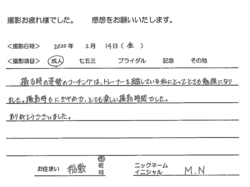 撮影お疲れ様でした。 感想をお願いいたします。
<撮影日時> 2020 年 2 月 14 日 ( 金 )
<撮影項目> 成人 七五三 ブライダル 記念 その他
撮る時の姿勢のコーチングは、トレーナーを目指している私にとってとても勉強になり
ました。撮影時もにぎやかで、とても楽しい撮影時間でした。
ありがとうございました。
お住まい 稲敷 市 町 村 ニックネーム イニシャル M.N